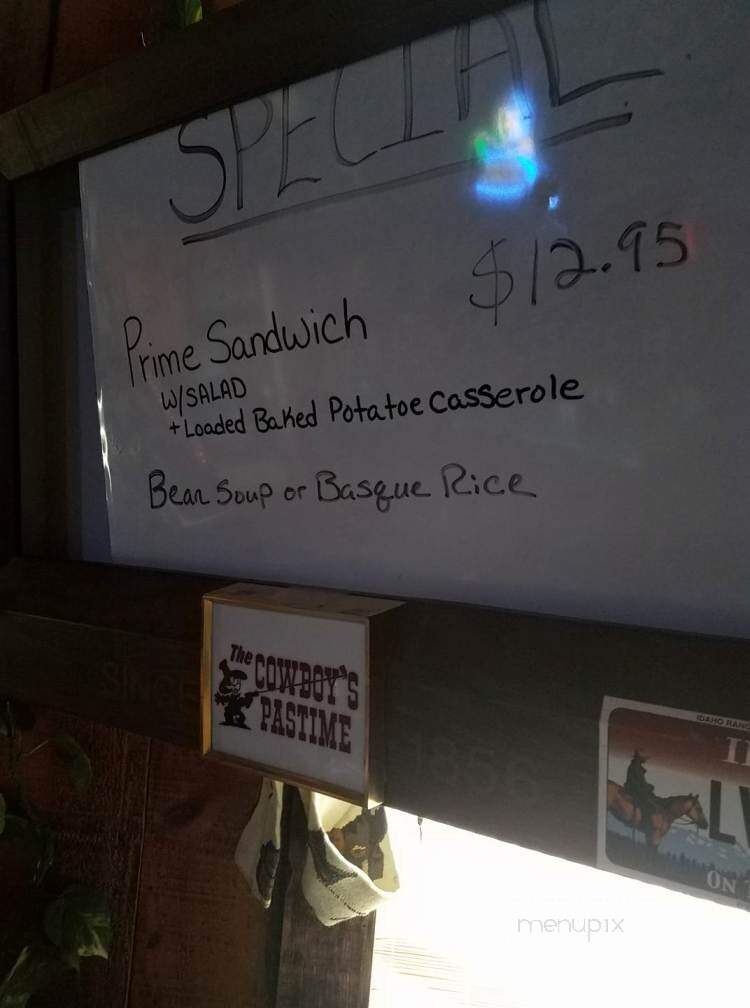 SPECIAL
$12.95
Prime Sandwich
W/SALAD
+ Loaded Baked Potatoe Casserole
Bean Soup or Basque Rice
The
COWBOY'S
PASTIME
SINCE 1856
ON
menupix